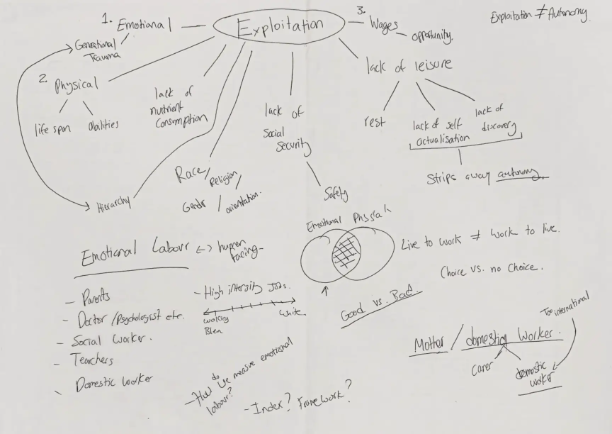 1. Emotional
Exploitation
3. Wages
opportunity.
Exploitation ≠ Autonomy
Generational
Trauma
2. Physical
life span
lack of
nutrient
consumption
lack of
Social
Security
lack of leisure
rest
lack of self
actualisation
lack of
discovery
Strips away autonomy
Hierarchy
Race
/ Religion
Gender / orientation.
Safety
Emotional Physical
Emotional Labour <-> human
facing
- Parents
- Doctor / Psychologist etc.
- Social worker.
- Teachers
- Domestic worker
- High intensity Jobs.
White.
- How do we measure emotional
labour?
- Index? Framework?
Good vs. Bad
Live to work ≠ Work to live.
Choice vs. no Choice.
/ domestic worker.
carer
domestic
worker